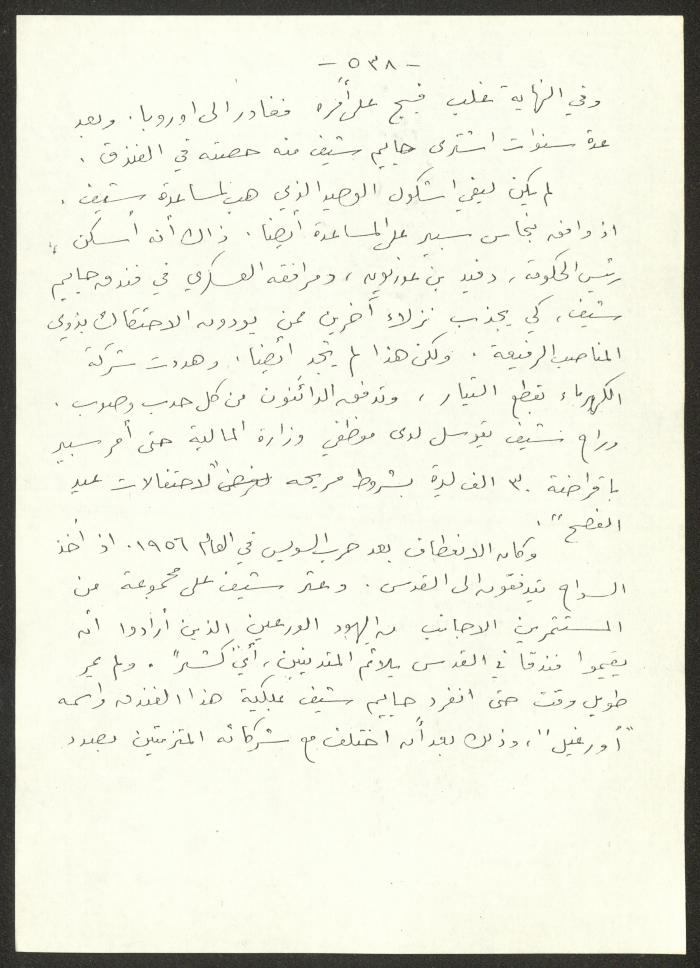 - ٥٣٨ -
وفي النهاية غلب فيبح على أمره فغادر الى اوروبا. وبعد
عدة سنوات اشترى حاييم شيف منه حصته في الفندق.
لم يكن ليفي اشكول الوحيد الذي هب لمساعدة شيف.
اذ وافق بنحاس سبير على المساعدة أيضا. ذلك أنه أسكن
رئيس الحكومة، دفيد بن غوريون، ومرافقه العسكري في فندق حاييم
شيف، كي يجذب نزلاء آخرين ممن يودون الاحتكاك بذوي
المناصب الرفيعة. ولكن هذا لم يُجد أيضا. وهددت شركة
الكهرباء بقطع التيار، وتدفق الدائنون من كل حدب وصوب.
وراح شيف يتوسل لدى موظفي وزارة المالية حتى أمر سبير
باقراضه ٣٠ الف ليرة بشروط مريحة "لاحتفالات عيد
الفصح".
وكان الانعطاف بعد حرب السويس في العام ١٩٥٦. اذ أخذ
السواح يتدفقون الى القدس. وعثر شيف على مجموعة من
المستثمرين الاجانب من اليهود الورعين الذين أرادوا أن
يقيموا فندقا في القدس يلائم المتدينين، أي "كشير". ولم يمر
طويل وقت حتى انفرد حاييم شيف بملكية هذا الفندق واسمه
"أورغيل"، وذلك بعد أن اختلف مع شركائه المتزمتين بصدد